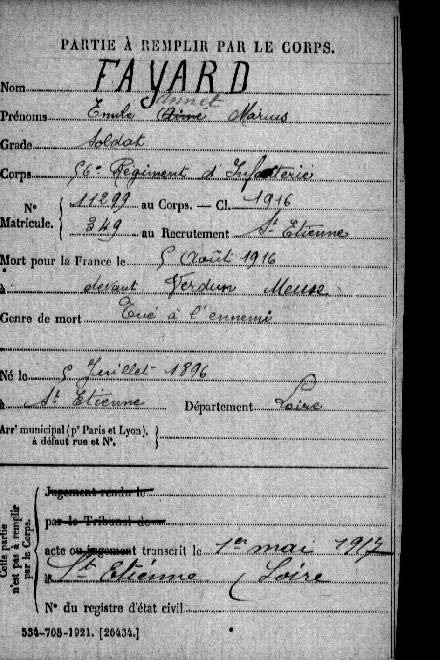 PARTIE À REMPLIR PAR LE CORPS.
Nom FAYARD
Annet
Prénoms Emile Aimé Marius
Grade Soldat
Corps 56e Régiment d'Infanterie
No Matricule. 11299 au Corps. — Cl. 1916
349 au Recrutement St Etienne
Mort pour la France le 5 Août 1916
à devant Verdun Meuse
Genre de mort Tué à l'ennemi
Né le 5 Juillet 1896
à St Etienne Département Loire
Arrt municipal (pr Paris et Lyon), à défaut rue et No.
Cette partie n'est pas à remplir par le Corps.
Jugement rendu le
par le Tribunal de
acte ou jugement transcrit le 1er mai 1917
à St Etienne (Loire
No du registre d'état civil
534-708-1921. [26434.]